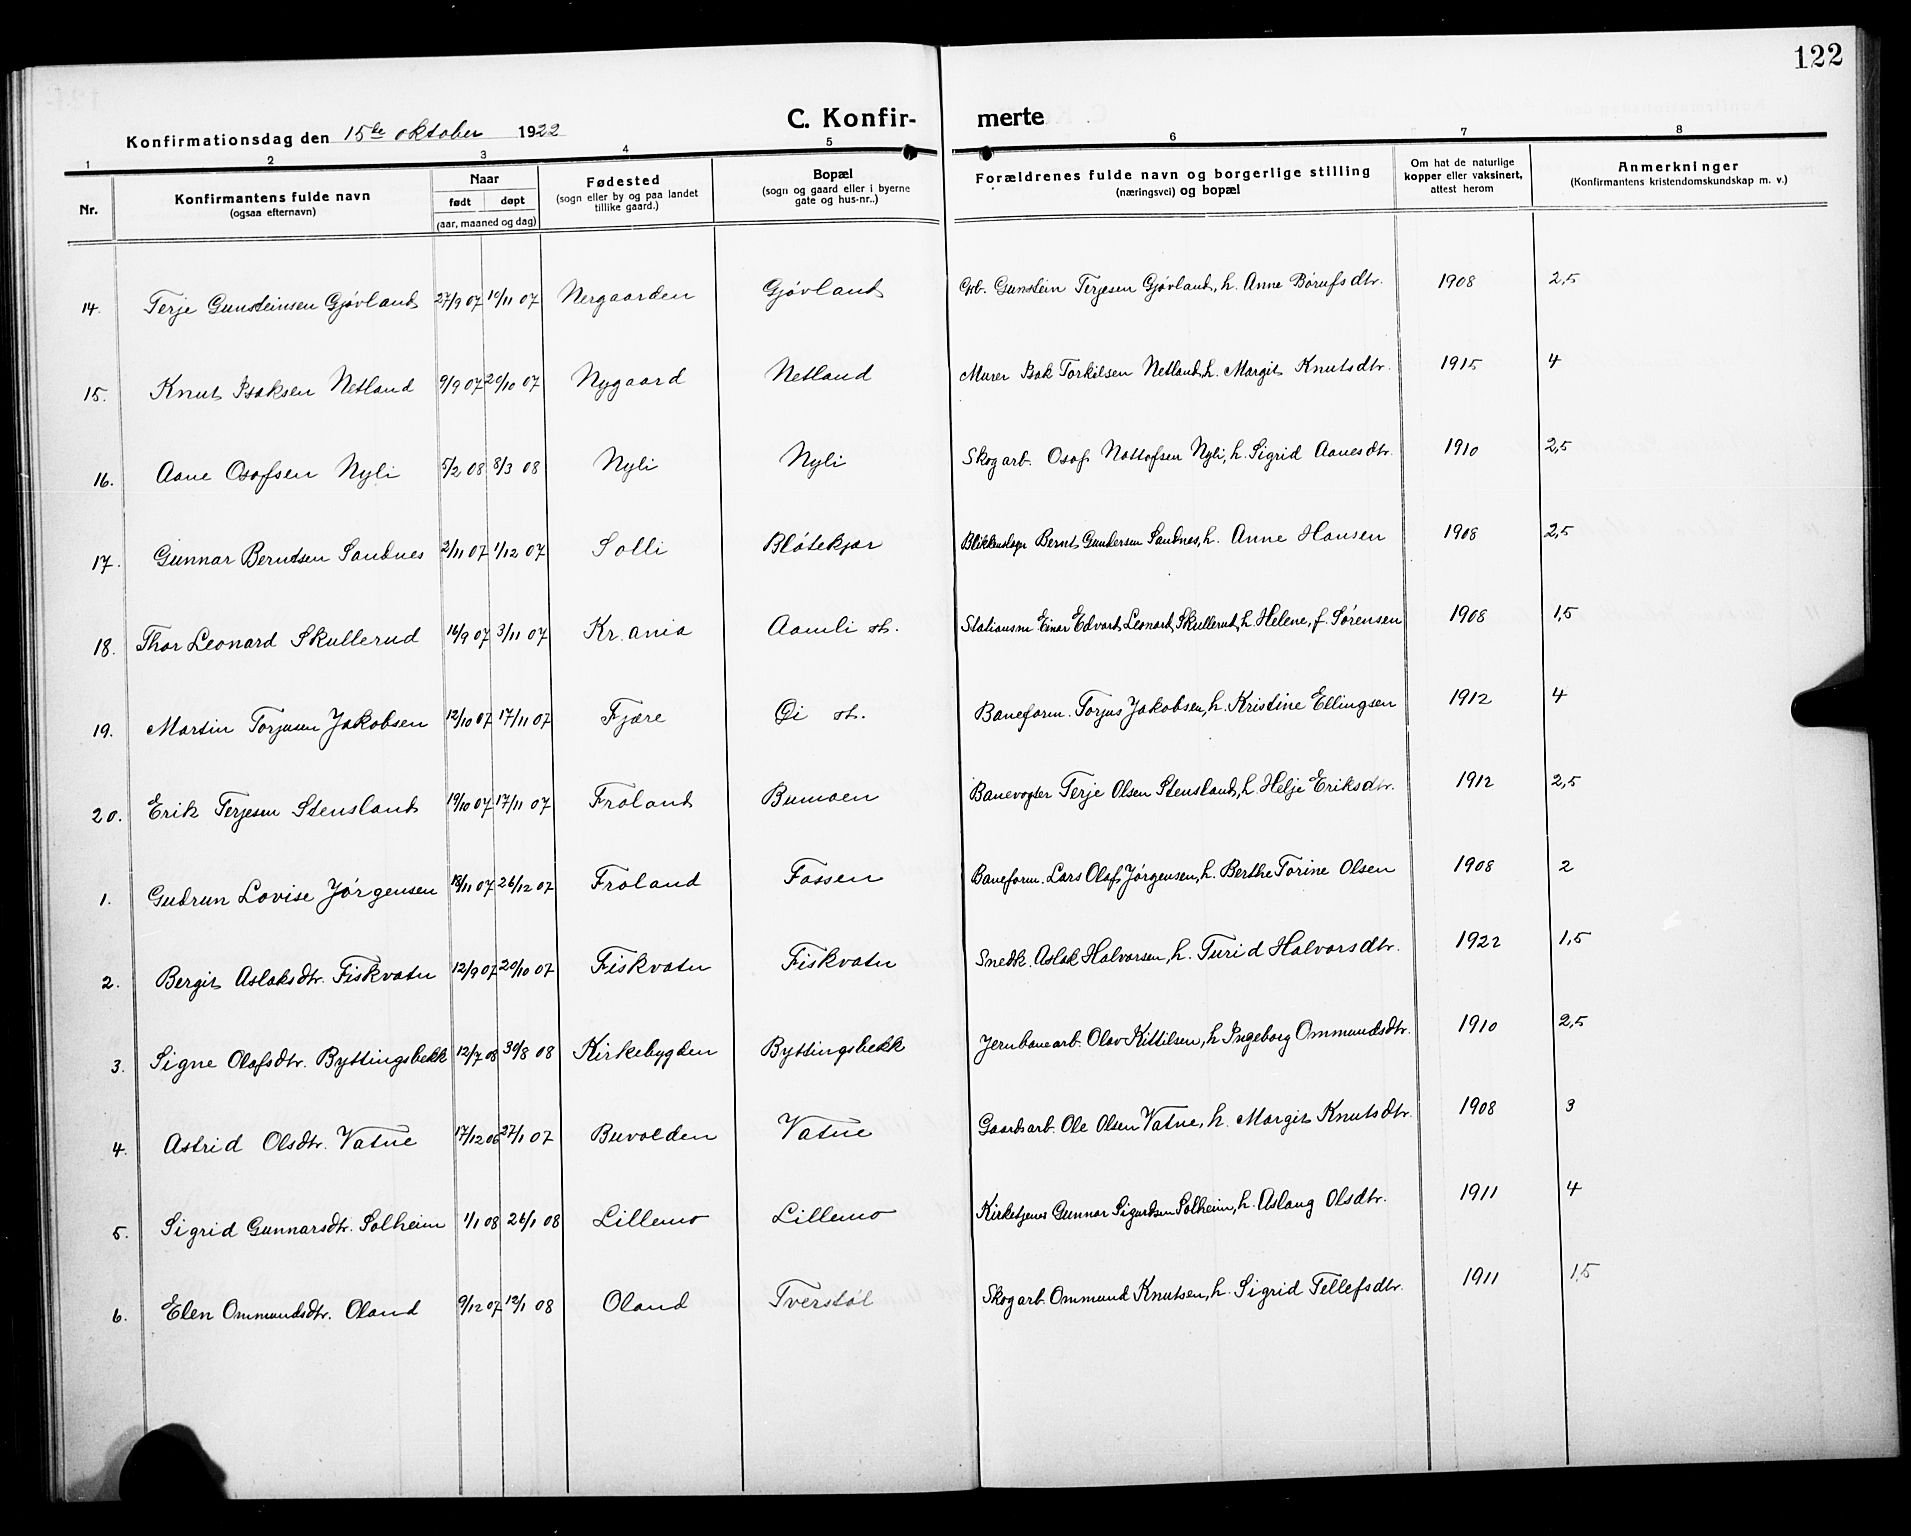 122
C. Konfir- merte
Konfirmationsdag den 15de oktober 1922
1 2 3 4 5 6 7 8
Nr. Konfirmantens fulde navn (ogsaa efternavn) Naar født døpt (aar, maaned og dag) Fødested (sogn eller by og paa landet tillike gaard.) Bopæl (sogn og gaard eller i byerne gate og hus-nr..) Forældrenes fulde navn og borgerlige stilling (næringsvei) og bopæl Om hat de naturlige kopper eller vaksinert, attest herom Anmerkninger (Konfirmantens kristendomskundskap m. v.)
14. Terje Gunsteinsen Gjövland 27/9 07 10/11 07 Nergaarden Gjövland Grb. Gunstein Terjesen Gjövland, h. Anne Börufsdtr. 1908 2,5
15. Knut Isaksen Netland 9/9 07 20/10 07 Nygaard Netland Murer Isak Torkilsen Netland, h. Margit Knutsdtr. 1915 4
16. Aane Osofsen Nyli 5/2 08 8/3 08 Nyli Nyli Skogarb. Osof Nottofsen Nyli, h. Sigrid Aanesdtr. 1910 2,5
17. Gunnar Berntsen Sandnes 2/11 07 1/12 07 Solli Blötekjær Blikkenslagr Bernt Gundersen Sandnes, h. Anne Hansen 1908 2,5
18. Thor Leonard Skullerud 14/9 07 3/11 07 Kr.ania Aamli st. Stationsm Einar Edvart Leonard Skullerud, h. Helene, f. Sørensen 1908 1,5
19. Martin Torjusen Jakobsen 12/10 07 17/11 07 Fjære Öi st. Baneform. Torjus Jakobsen, h. Kristine Ellingsen 1912 4
20. Erik Terjesen Stensland 19/10 07 17/11 07 Froland Bumoen Banevogter Terje Olsen Stensland, h. Helje Eriksdtr. 1912 2,5
1. Gudrun Lovise Jörgensen 18/11 07 26/12 07 Froland Fossen Baneform. Lars Olaf Jörgensen, h. Berthe Torine Olsen 1908 2
2. Bergit Aslaksdtr. Fiskvatn 12/9 07 20/10 07 Fiskvatn Fiskvatn Snedk. Aslak Halvorsen, h. Turid Halvorsdtr. 1922 1,5
3. Signe Olofsdtr. Byttingsbekk 12/7 08 30/8 08 Kirkebygden Byttingsbekk Jernbanearb. Olav Kittilsen, h Ingeborg Ommundsdtr. 1910 2,5
4. Astrid Olsdtr. Vatne 17/12 06 27/1 07 Buvolden Vatne Gaardsarb. Ole Olsen Vatne, h. Margit Knutsdtr. 1908 3
5. Sigrid Gunnarsdtr. Solheim 1/1 08 26/1 08 Lillemo Lillemo Kirketjener Gunnar Sigurdsen Solheim, h. Aslaug Olsdtr. 1911 4
6. Elen Ommundsdtr. Oland 9/12 07 12/1 08 Oland Tverstöl Skogarb. Ommund Knutsen, h. Sigrid Tellefsdtr. 1911 1,5